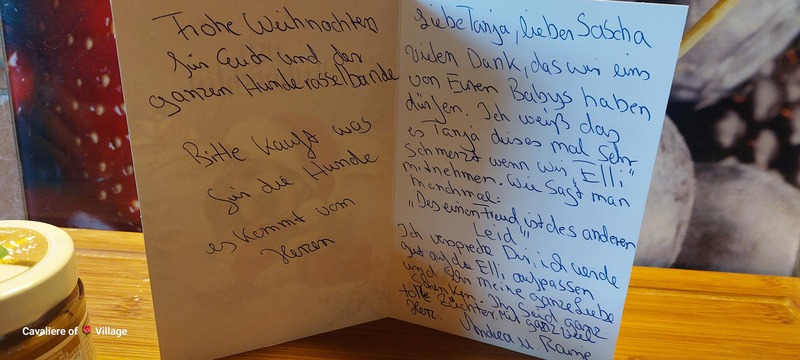 Frohe Weihnachten
für Euch und der
ganzen Hunderasselbande
Bitte kauft was
für die Hunde
es kommt vom
Herzen
Liebe Tanja, lieber Sascha
vielen Dank, das wir eins
von Euren Babys haben
dürfen. Ich weiß das
es Tanja dieses mal sehr
schmerzt wenn wir „Elli"
mitnehmen. Wie sagt man
manchmal:
„Des einen Freud, ist des anderen
Leid"
Ich verspreche Dir, ich werde
gut auf die Elli aufpassen
und ihr meine ganze Liebe
schenken. Ihr seid ganz
tolle Züchter. Mit ganz viel
Herz.
Andrea u.
Cavaliere of Village